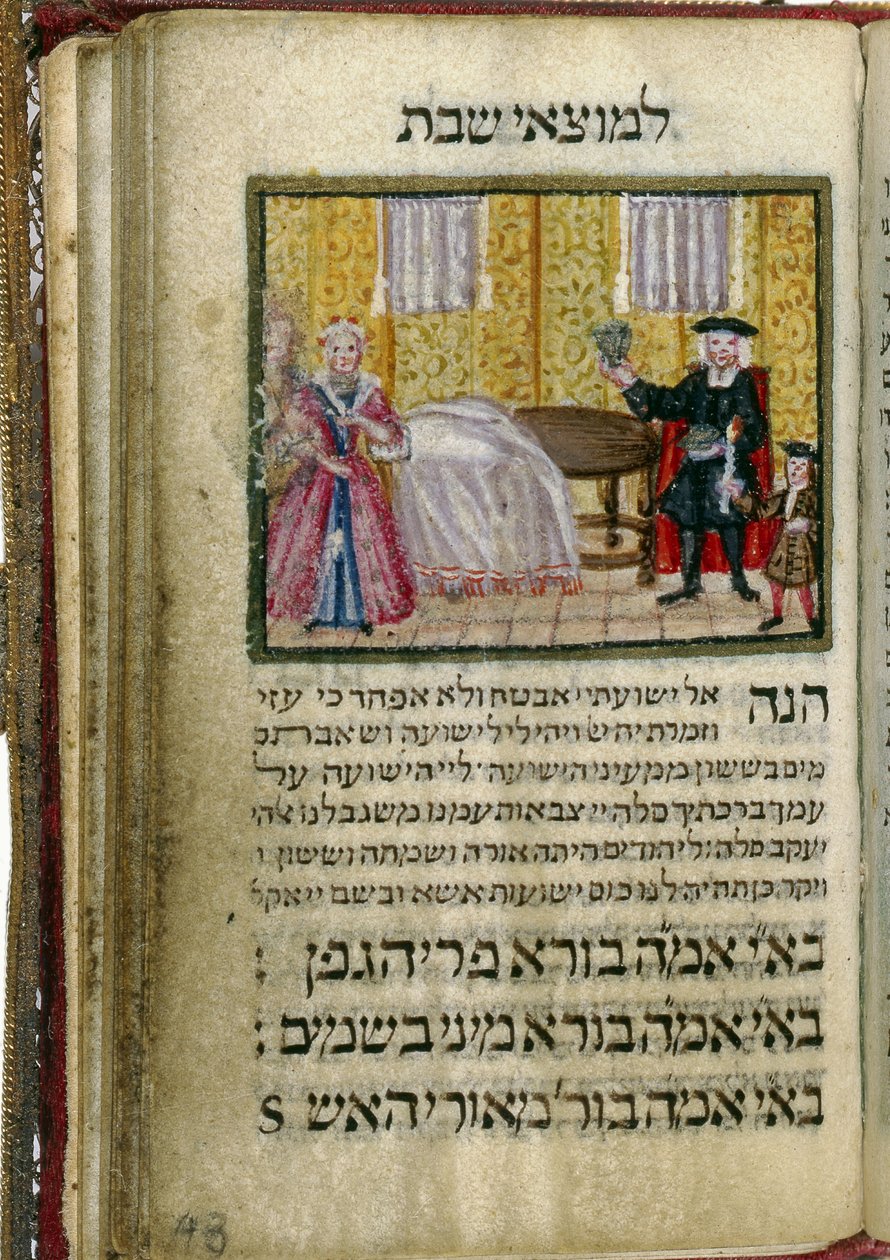 למוצאי שבת
הנה אל ישועתי אבטח ולא אפחד כי עזי
וזמרת יה יי ויהי לי לישועה ושאבתם
מים בששון ממעיני הישועה: לייי הישועה על
עמך ברכתיך סלה יי צבאות עמנו משגב לנו אלהי
יעקב סלה: ליהודים היתה אורה ושמחה וששון ו
ויקר כן תהיה לנו כוס ישועות אשא ובשם יי אקר
בא״י אמ״ה בורא פרי הגפן :
בא״י אמ״ה בורא מיני בשמים :
בא״י אמ״ה בור׳ מאורי האש S
48